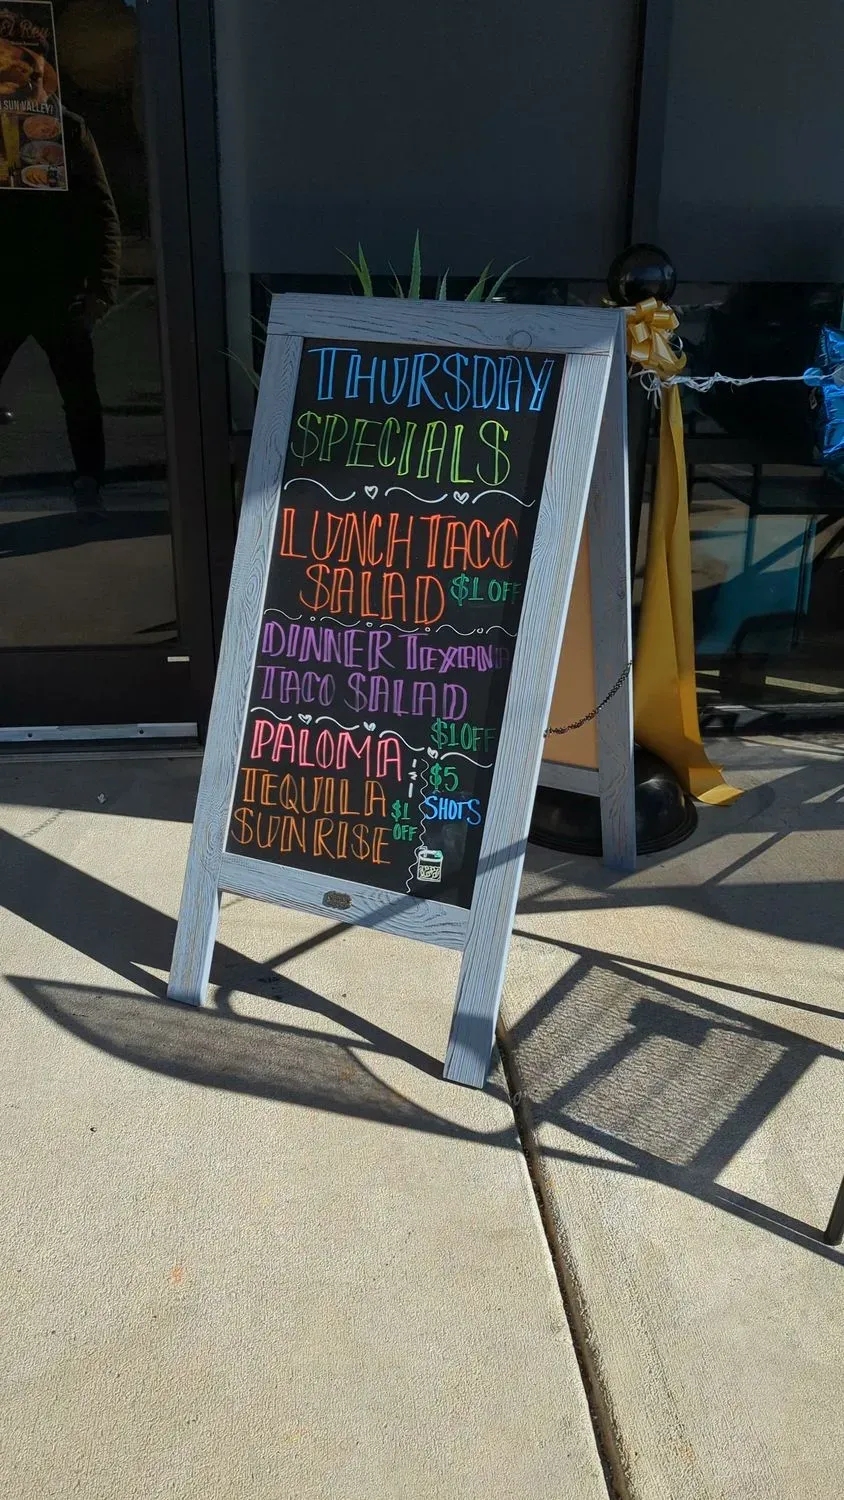 El Rey
SUN VALLEY!
THURSDAY
SPECIALS
LUNCH TACO
SALAD $1 OFF
DINNER TEXIANA
TACO SALAD
$1 OFF
PALOMA
TEQUILA
SUNRISE
$1
OFF
$5
SHOTS